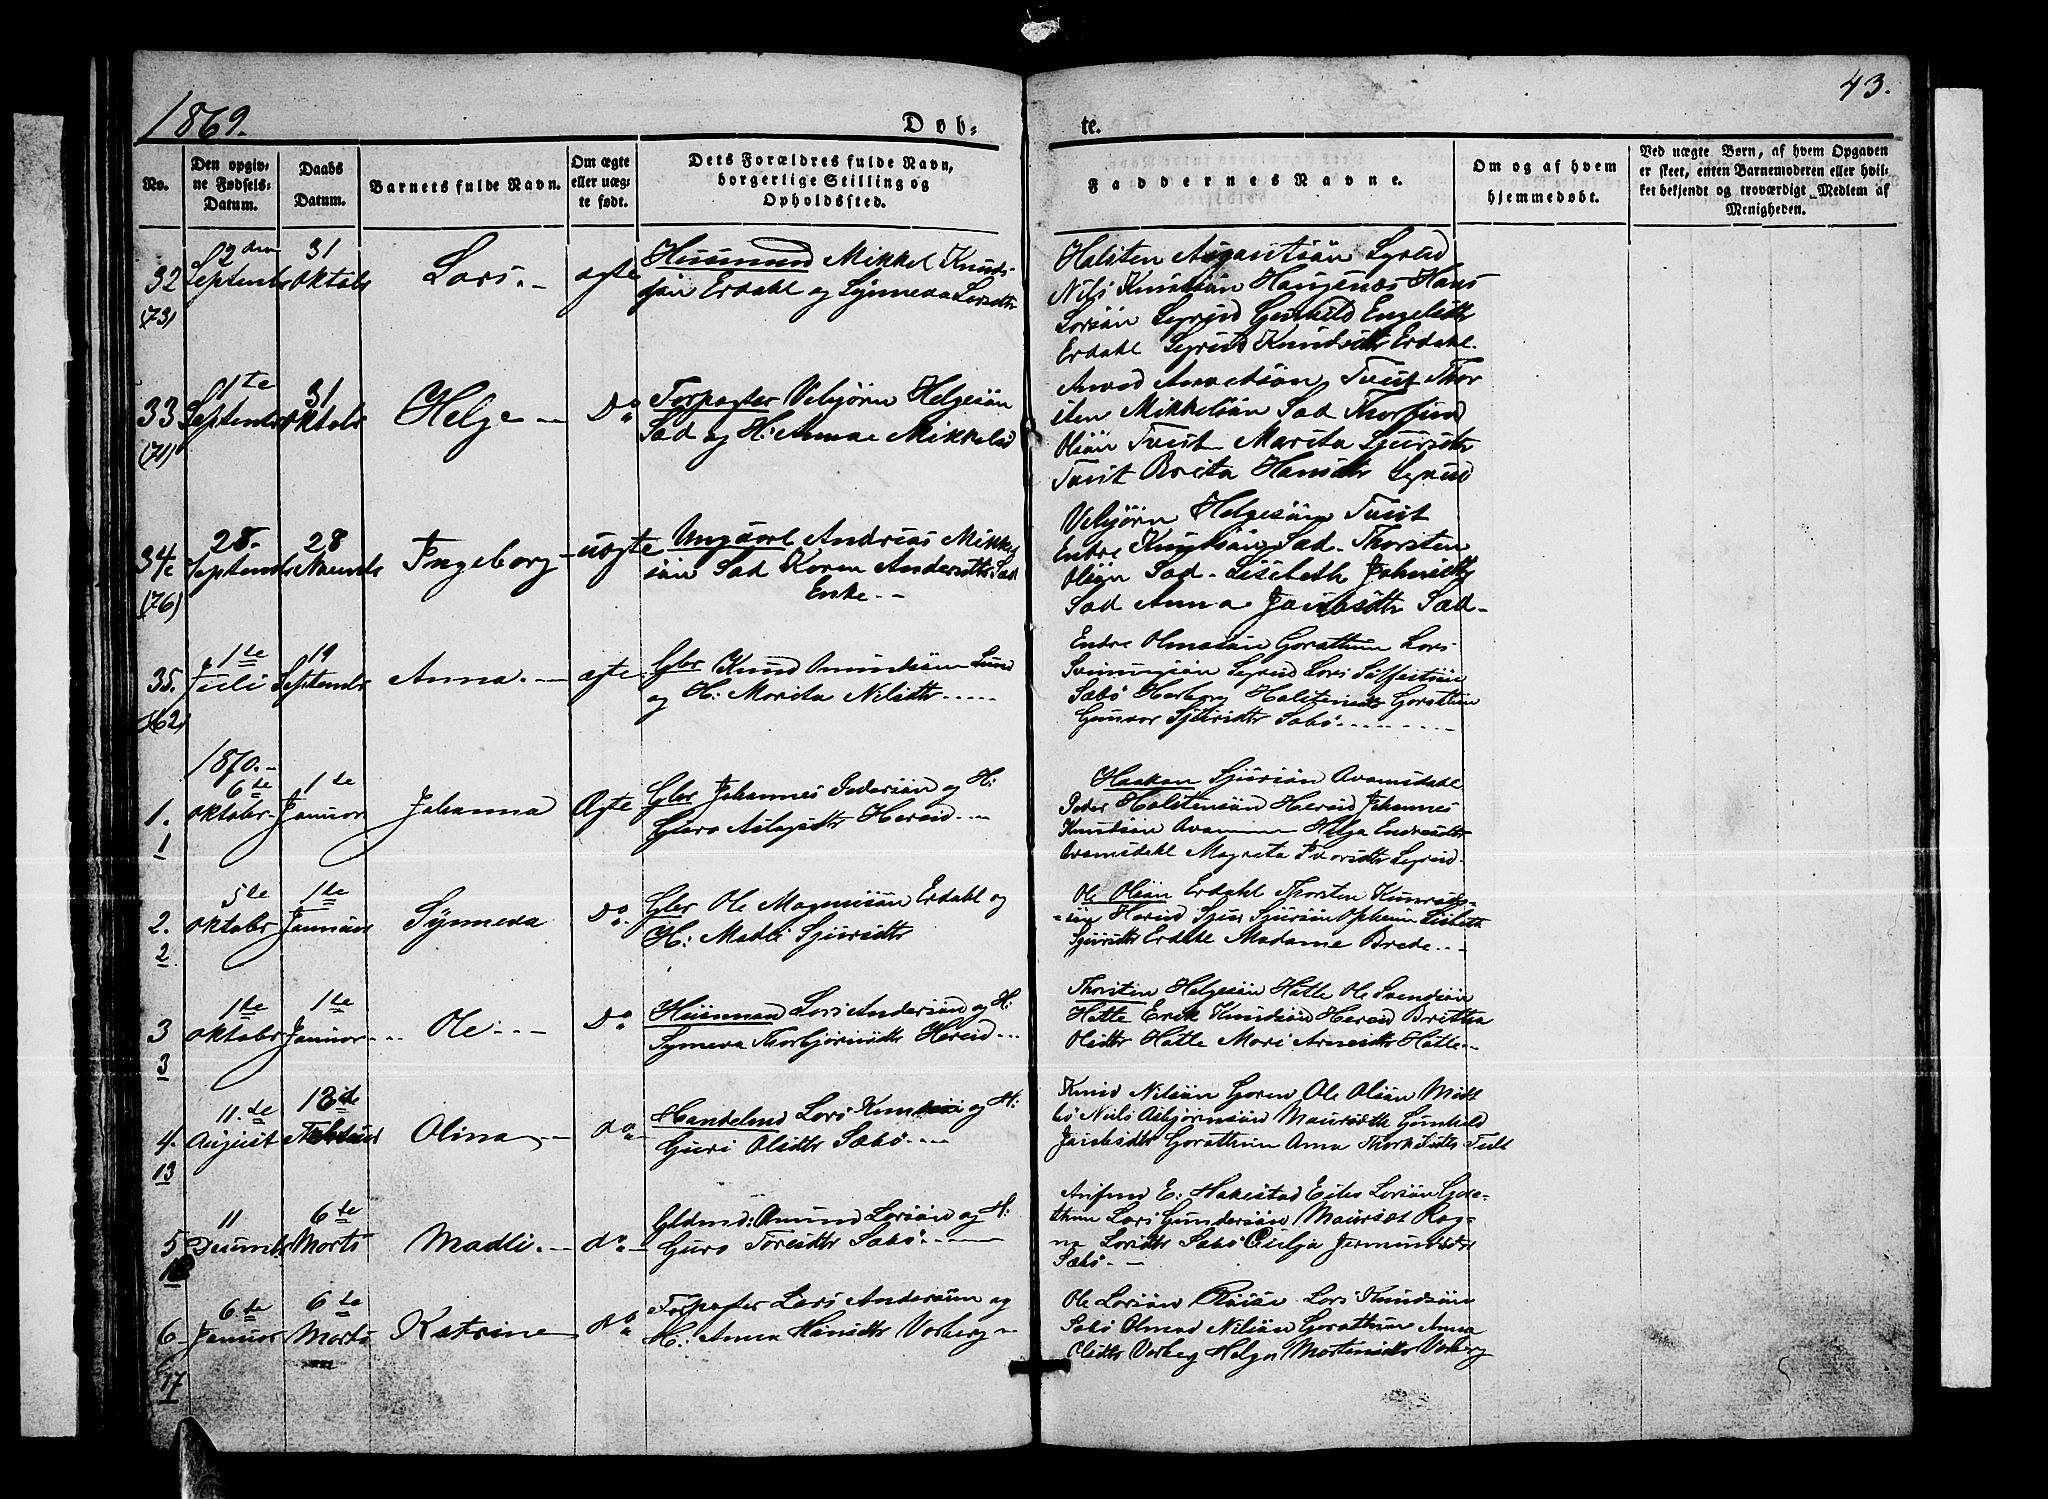 1869.
Døb-
te.
43.
No.
Den opgiv-
ne Fødsels-
Datum.
Daabs
Datum.
Barnets fulde Navn.
Om ægte
eller uæg-
te født.
Dets Forældres fulde Navn,
borgerlige Stilling og
Opholdssted.
Faddernes Navne.
Om og af hvem
hjemmedøbt.
Ved uægte Børn, af hvem Opgaven
er skeet, enten Barnemoderen eller hvil-
ket bekjendt og troværdigt Medlem af
Menigheden.
32
(73)
2den
Septembr
31
Oktobr
Lars.
ægte
Huusmand Mikkel Knuds-
søn Erdahl og Synneva Larsdtr
Halsten Asgautsøn Lyreid
Nils Knudsøn Haugenæs Hans
Larsøn Lyreid Gunhild Engelsdtr
Erdahl Sigrid Knudsdtr Erdahl.
33
(71)
1te
Septembr
31
Oktobr
Helge
Do
Forpagter Vebjørn Helgesøn
Sæd og H: Anna Mikkelsd
Amund Amundsøn Tveit Thor
sten Mikkelsøn Sæd Thorfind
Olsøn Tveit Marita Sjursdtr
Tveit Brita Hansdtr Lyreid
34
(76)
28.
Septembr
28
Novembr
Ingeborg
uægte
Ungkarl Andrias Mikkel
søn Sæd Karen Andersdtr Sæd
Enke
Vebjørn Helgesøn Tveit
Endre Knudsøn Sæd Thorsten
Olsøn Sæd Lisebeth Johnsdtr
Sæd Anna Jacobsdtr Sæd
35.
(62)
1te
Juli
19
Septembr
Anna.
ægte
Gbr Knud Amundsøn Lund
og H: Marita Nilsdtr
Endre Olmotsøn Garathun Lars
Sveinungsøn Lyreid Lars Silfestsøn
Sæbø Herborg Halstensdtr Garathun
Gunvor Sjursdtr Sæbø
1870.
1.
1
6te
Oktober
1te
Januar
Johanna
Ægte
Gbr Johannes Pedersøn og H:
Guro Aslagsdtr Hereid
Haakon Sjursøn Avamsdahl
Peder Halstensøn Hereid Johannes
Knudsøn Helga Endresdtr
Avamsdahl Magreta Ivarsdtr Lyreid
2.
2
5te
Oktober
1te
Januar
Synneva
Do
Gbr Ole Magnusøn Erdahl og
H: Madli Sjursdtr
Ole Olsøn Erdahl Thorsten Gunrads-
søn Hereid Sjur Sjursøn Opheim Lisbeth
Sjursdtr Erdahl Madame Brede
3
3
1te
Oktober
1te
Januar
Ole
Do
Huusmand Lars Andersøn og H:
Synneva Thorbjørnsdtr Hereid
Thorsten Helgesøn Hatle Ole Svendsøn
Hatle Erik Knudsøn Hereid Brita
Olsdtr Hatle Mari Arnesdtr Hatle
4.
13
11.te
August
13de
Februar
Olina
do
Handelsmd Lars Knudsøn og H:
Guri Olsdtr Sæbø
Knud Nilsøn Garen Ole Olsøn
Nils Asbjørnsøn Maursæth Gunhild
Jacobsdtr Garathun Anna Thorkelsdtr
5
11
Decembr
6te
Marts
Madli.
do
Gldmd: Amund Larsøn og H:
Guro Toresdtr Sæbø
Arnfind E: Hakestad Eilev Larsøn Gara-
thun Lars Gundersøn Maursæt Rag-
na Larsdtr Sæbø Cecilja Jermundsdtr
Sæbø
6
17
6te
Januar
6te
Marts
Katrine
do
Forpagter Lars Andersøn og
H: Anna Hansdtr Varberg
Ole Larsøn Røise Lars Knudsøn
Sæbø Olmod Nilsøn Garathun Anna
Olsdtr Varberg Helga Mortensdtr Varberg